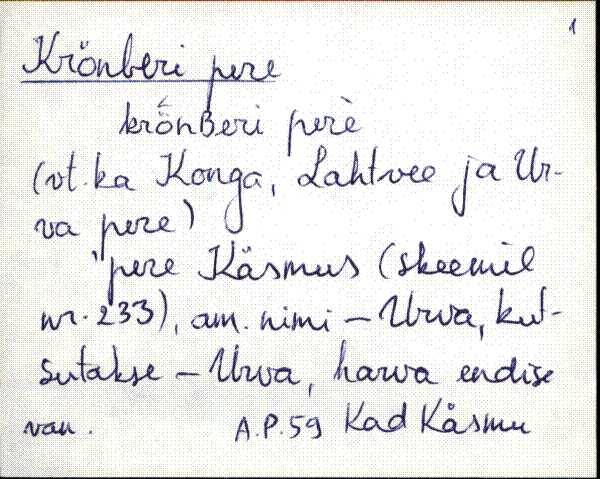 1
Krönberi pere
krö́nBeri perè
(vt. ka Konga, Lahtvee ja Ur-
va pere)
pere Käsmus (skeemil
nr. 233), am. nimi – Urva, kut-
sutakse – Urva, harva endise
van. A.P.59 Kad Käsmu